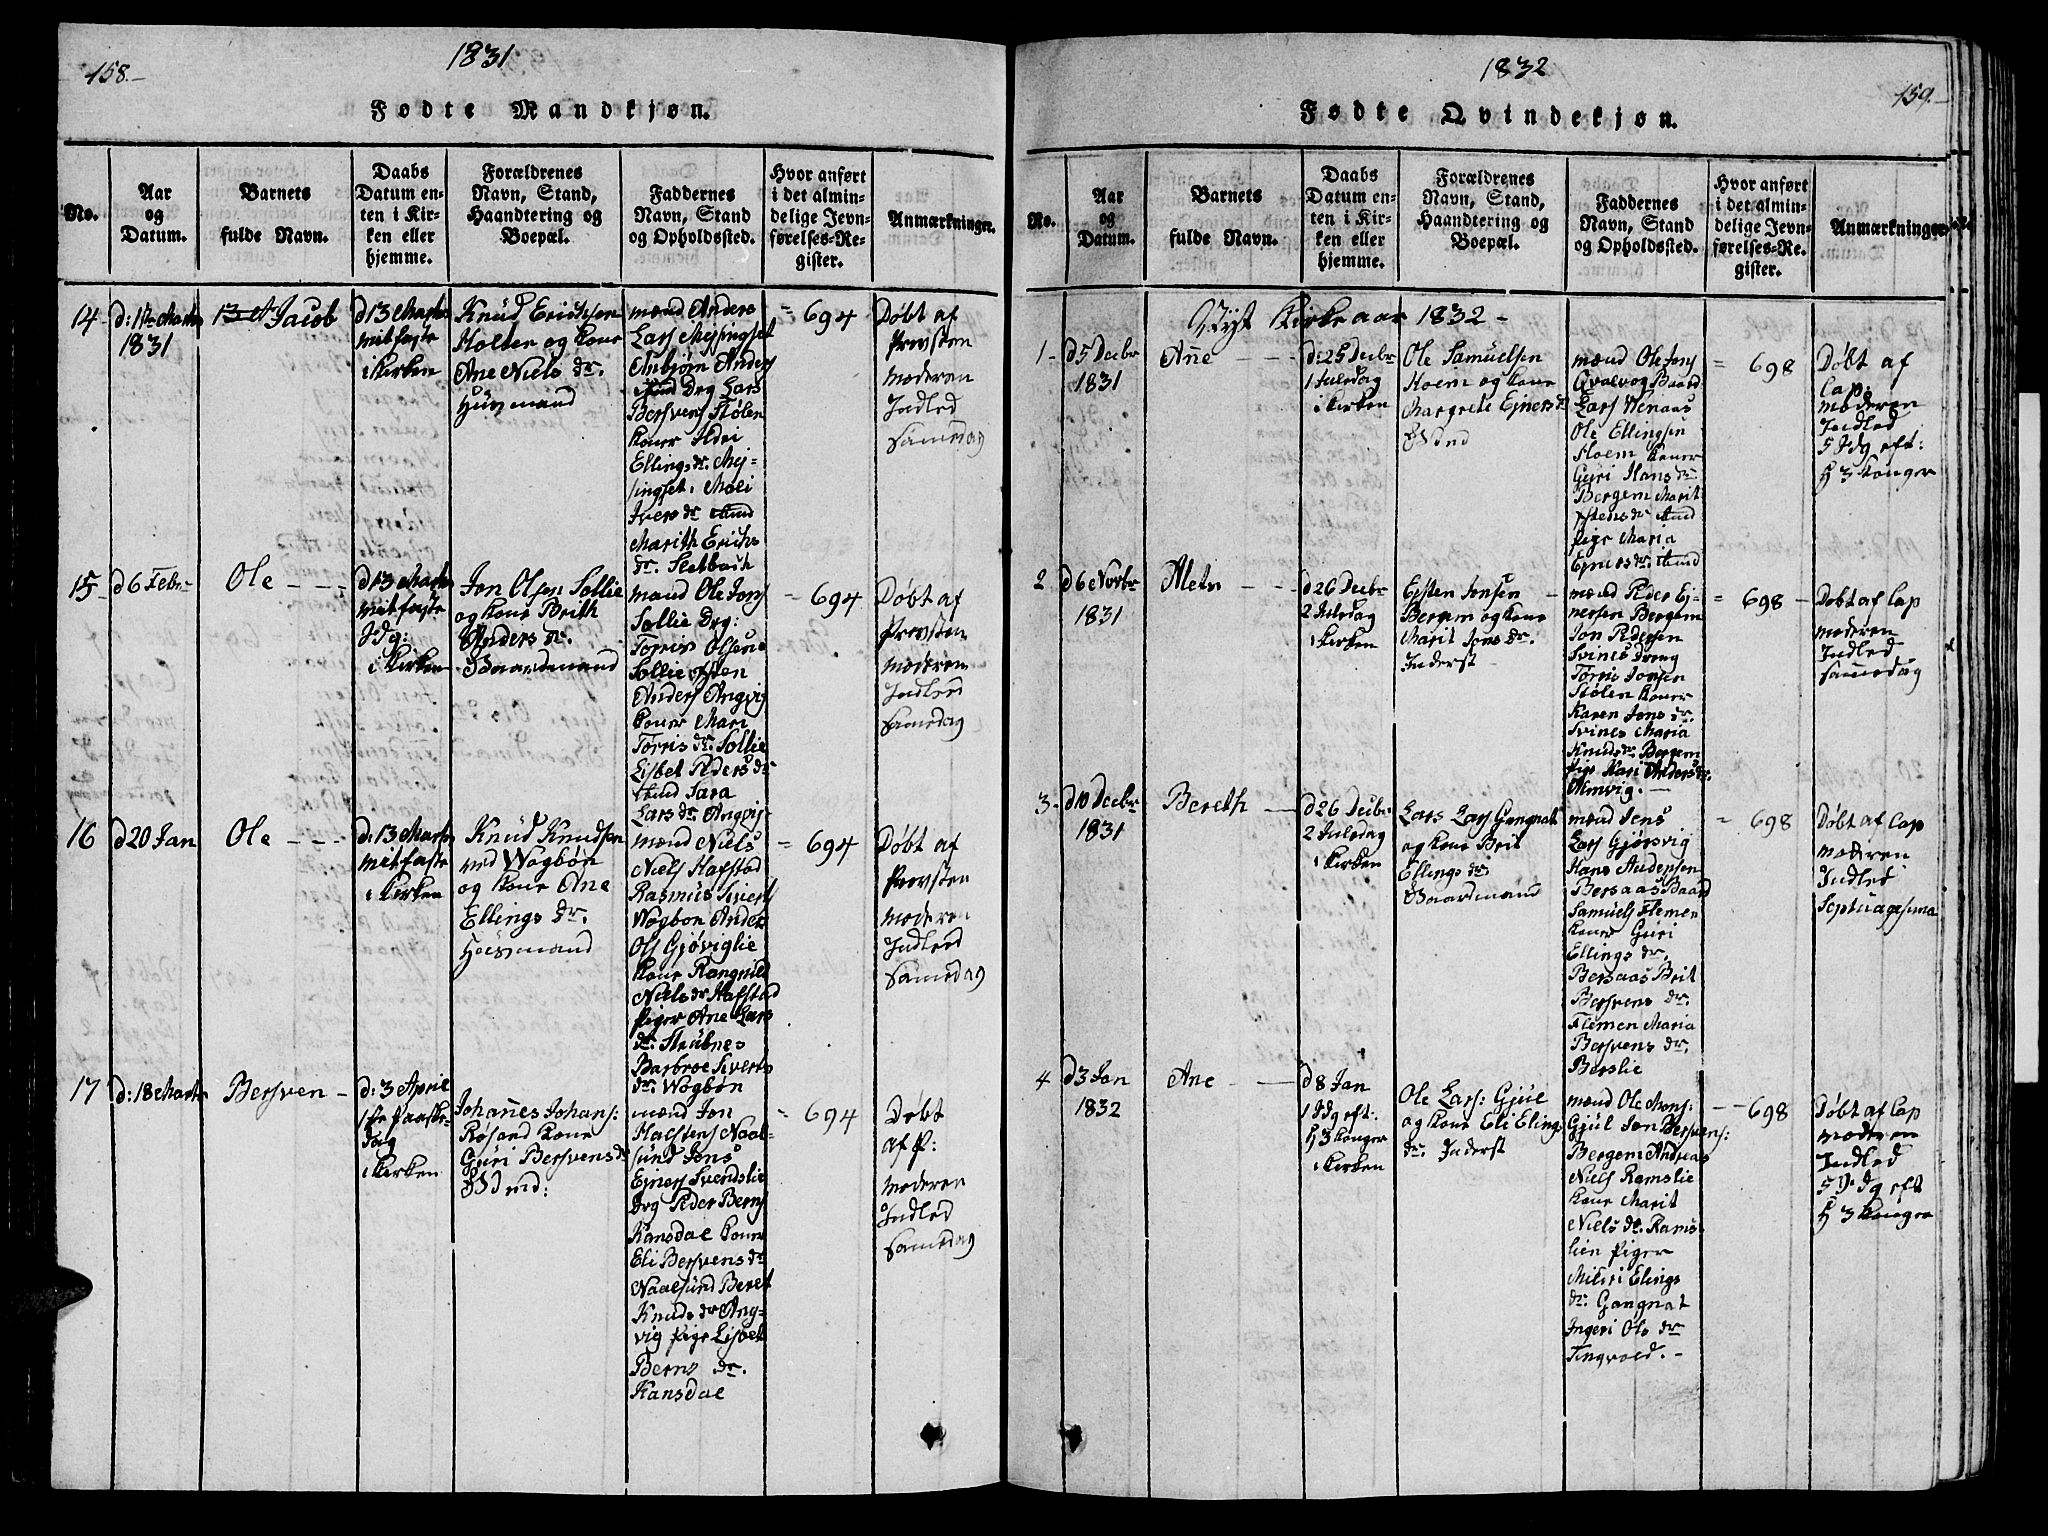 158.
1831
Fødte Mandkjøn.
No.
Aar
og
Datum.
Barnets
fulde Navn.
Daabs
Datum en-
ten i Kir-
ken eller
hjemme.
Forældrenes
Navn, Stand,
Haandtering og
Boepæl.
Faddernes
Navn, Stand
og Opholdssted.
Hvor anført
i det almin-
delige Jevn-
førelses-Re-
gister.
Anmærkninger.
14
1831
Jacob
d 13 Marts
mitfaste
i Kirken
Knud Erichsen
Holten og Kone
Ane Niels dr.
Huusmand
mænd Anders
Lars Mejsingset
Anbjørn Anders
Drg Lars
Bersvens Stølen
Koner Ildri
Ellings dr. Mej-
singset. Mali
Ivers dr
Marith Erichs
dr. Sletbach
= 694
Døbt af
Provsten
Moderen
Indled
Samedag
15
d 6 Febr
Ole
d 13 Marts
mitfaste
Sdg:
i Kirken
Jon Olsen Sollie
og Kone Brith
Anders dr.
Gaardmand
mænd Ole Jons
Sollie Drg:
Torris Olsen
Sollie Esten
Anders Angvig
Koner Mari
Torris dr. Sollie
Lisbet Peders dr
Sara
Lars dr. Angvig
= 694
Døbt af
Provsten
Moderen
Indled
Samedag
16
d 20 Jan
Ole
d: 13 Marts
mitfaste
i Kirken
Knud Knudsen
ved Wogbøn
og Kone Ane
Ellings dr.
Huusmand
mænd Niels
Niels Hafstad
Rasmus Sivert
Wogbøn Anders
Ols Gjøviglie
Kone Rangnild
Niels dr Hafstad
Piger Ane Lars
dr. Strübnes
Barbroe Siverts
dr. Wogbøn
= 694
Døbt af
Provsten
Moderen
Indled
Samedag
17
d: 18 Marts
Bersven
d: 3 April
1ste Paaske-
dag
i Kirken
Johañes Johans:
Røsand Kone
Guri Bersvens dr
Gdmd:
mænd Jon
Halstens Naal-
sund Jons
Ejners Svendslie
Drg Peder Berns
Kansdal Koner
Eli Bersvens dr
Naalsund Beret
Knuds dr Ang-
vig Pige Lisbet
Berns dr.
Kansdal
= 694
Døbt
af P:
Moderen
Indled
Samedag
1832
159.
Fødte Qvindekjøn.
No.
Aar
og
Datum.
Barnets
fulde Navn.
Daabs
Datum en-
ten i Kir-
ken eller
hjemme.
Forældrenes
Navn, Stand,
Haandtering og
Boepæl.
Faddernes
Navn, Stand
og Opholdssted.
Hvor anført
i det almin-
delige Jevn-
førelses-Re-
gister.
Anmærkninger.
Nyt Kirkeaar 1832 -
1
d 5 Decbr
1831
Añe
d: 25 Decbr
1 Juledag
i Kirken
Ole Samuelsen
Hoem og Kone
Margrete Ejners dr
Gdmd
mænd Ole Jons
Qvalvog Baard
Lars Wenaas
Ole Ellingsen
Hoem Koner
Guri Hans dr
Bergem Marit
Estens dr
Pige Maria
Ejners dr.
= 698
Døbt af
Cap:
Moderen
Indled
5 Sdg eft:
H 3 Konger
2
d 6 Novbr
1831
Alet
d 26 Decbr
2 Juledag
i Kirken
Ejsten Jonsen
Bergem og Kone
Marit Jons dr.
Inderst
mænd Peder Ej-
nersen Bergem
Jon Pedersen
Svines Dreng
Torris Jonsen
Stølen Koner
Karen Jons dr.
Svines Maria
Knuds dr. Bergem
Pige Kari Anders dr.
Almvig.
= 698
Døbt af Cap
Moderen
Indled
Samedag
3
d 10 Decbr
1831
Bereth
d 26 Decbr
2 Juledag
i Kirken
Lars Lars Gangnat
og Kone Brit
Ellings dr:
Gaardmand
mænd Jens
Lars Gjørsvig
Hans Andersen
Bersaas Baard
Samuels Flemen
Koner Guri
Ellings dr.
Bersaas Brit
Bersvens dr.
Flemen Maria
Bersvens dr.
Berslie
= 698
Døbt af Cap
Moderen
Indled
Septuagesima
4
d 3 Jan
1832
Ane
d 8 Jan
1 Sdg eft:
H 3 Konger
i Kirken
Ole Lars: Gjül
og Kone Eli Eling
dr. Inderst
mænd Ole Mons:
Gjül Jon Bersvens:
Bergem Andreas
Niels Ramslie
Kone Marit
Niels dr. Rams-
lien Piger
Elings
dr. Gangnat
Ingeri Ols dr
Tingvold. -
698
Døbt af Cap
Moderen
Indled
5 S.dg eft
H 3 Konger